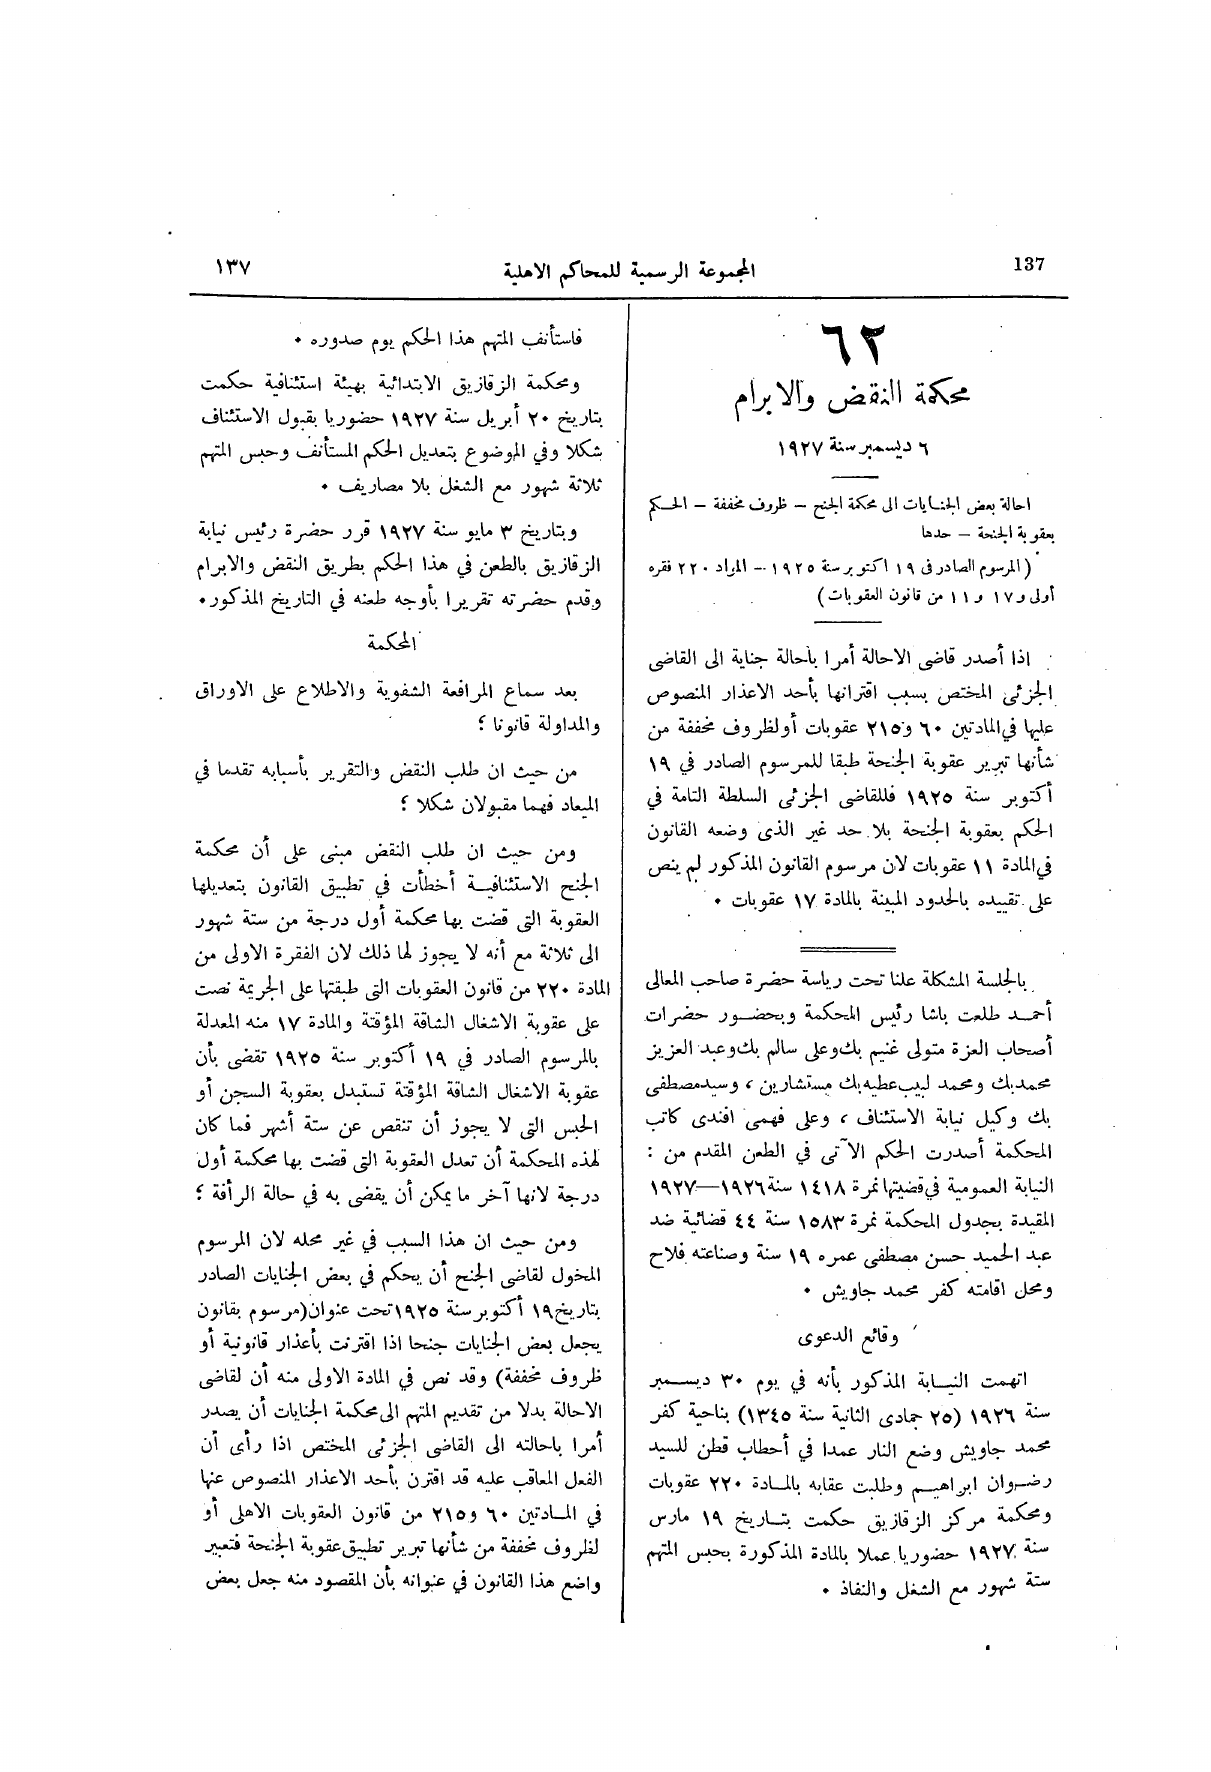 137
المجموعة الرسمية للمحاكم الاهلية
١٣٧
٦٣
محكمة النقض والابرام
٦ ديسمبر سنة ١٩٢٧
احالة بعض الجنايات الى محكمة الجنح – ظروف مخففة – الحكم
بعقوبة الجنحة – حدها
(المرسوم الصادر فى ١٩ اكتوبر سنة ١٩٢٥ – المراد ٢٢٠ فقره
أولى و١٧ و١١ من قانون العقوبات)
اذا أصدر قاضى الاحالة أمرا بأحالة جناية الى القاضى
الجزئى المختص بسبب اقترانها بأحد الاعذار المنصوص
عليها فى المادتين ٦٠ و٢١٥ عقوبات أولظروف مخففة من
شأنها تبرير عقوبة الجنحة طبقا للمرسوم الصادر في ١٩
أكتوبر سنة ١٩٢٥ فللقاضى الجزئى السلطة التامة في
الحكم بعقوبة الجنحة بلا حد غير الذى وضعه القانون
في المادة ١١ عقوبات لان مرسوم القانون المذكور لم ينص
على تقييده بالحدود المبينة بالمادة ١٧ عقوبات .
بالجلسة المشكلة علنا تحت رياسة حضرة صاحب المعالى
أحمد طلعت باشا رئيس المحكمة وبحضور حضرات
أصحاب العزة متولى غنيم بك وعلى سالم بك وعبد العزيز
محمد بك ومحمد لبيب عطيه بك مستشارين ، وسيد مصطفى
بك وكيل نيابة الاستئناف ، وعلى فهمى افندى كاتب
المحكمة أصدرت الحكم الآتى في الطعن المقدم من :
النيابة العمومية في قضيتها نمرة ١٤١٨ سنة ١٩٢٦—١٩٢٧
المقيدة بجدول المحكمة نمرة ١٥٨٣ سنة ٤٤ قضائية ضد
عبد الحميد حسن مصطفى عمره ١٩ سنة وصناعته فلاح
ومحل اقامته كفر محمد جاويش .
وقائع الدعوى
اتهمت النيابة المذكور بأنه في يوم ٣٠ ديسمبر
سنة ١٩٢٦ (٢٥ جمادى الثانية سنة ١٣٤٥) بناحية كفر
محمد جاويش وضع النار عمدا في أحطاب قطن للسيد
رضوان ابراهيم وطلبت عقابه بالمادة ٢٢٠ عقوبات
ومحكمة مركز الزقازيق حكمت بتاريخ ١٩ مارس
سنة ١٩٢٧ حضوريا عملا بالمادة المذكورة بحبس المتهم
ستة شهور مع الشغل والنفاذ .
فاستأنف المتهم هذا الحكم يوم صدوره .
ومحكمة الزقازيق الابتدائية بهيئة استئنافية حكمت
بتاريخ ٢٠ أبريل سنة ١٩٢٧ حضوريا بقبول الاستئناف
شكلا وفي الموضوع بتعديل الحكم المستأنف وحبس المتهم
ثلاثة شهور مع الشغل بلا مصاريف .
وبتاريخ ٣ مايو سنة ١٩٢٧ قرر حضرة رئيس نيابة
الزقازيق بالطعن في هذا الحكم بطريق النقض والابرام
وقدم حضرته تقريرا بأوجه طعنه في التاريخ المذكور.
المحكمة
بعد سماع المرافعة الشفوية والاطلاع على الاوراق
والمداولة قانونا ؛
من حيث ان طلب النقض والتقرير بأسبابه تقدما في
الميعاد فهما مقبولان شكلا ؛
ومن حيث ان طلب النقض مبنى على أن محكمة
الجنح الاستئنافية أخطأت في تطبيق القانون بتعديلها
العقوبة التى قضت بها محكمة أول درجة من ستة شهور
الى ثلاثة مع أنه لا يجوز لها ذلك لان الفقرة الاولى من
المادة ٢٢٠ من قانون العقوبات التى طبقتها على الجريمة نصت
على عقوبة الاشغال الشاقة المؤقتة والمادة ١٧ منه المعدلة
بالمرسوم الصادر في ١٩ أكتوبر سنة ١٩٢٥ تقضى بأن
عقوبة الاشغال الشاقة المؤقتة تستبدل بعقوبة السجن أو
الحبس التى لا يجوز أن تنقص عن ستة أشهر فما كان
لهذه المحكمة أن تعدل العقوبة التى قضت بها محكمة أول
درجة لانها آخر ما يمكن أن يقضى به في حالة الرأفة ؛
ومن حيث ان هذا السبب في غير محله لان المرسوم
المخول لقاضى الجنح أن يحكم في بعض الجنايات الصادر
بتاريخ ١٩ أكتوبر سنة ١٩٢٥ تحت عنوان (مرسوم بقانون
يجعل بعض الجنايات جنحا اذا اقترنت بأعذار قانونية أو
ظروف مخففة) وقد نص في المادة الاولى منه أن لقاضى
الاحالة بدلا من تقديم المتهم الى محكمة الجنايات أن يصدر
أمرا باحالته الى القاضى الجزئى المختص اذا رأى أن
الفعل المعاقب عليه قد اقترن بأحد الاعذار المنصوص عنها
في المادتين ٦٠ و٢١٥ من قانون العقوبات الاهلى أو
لظروف مخففة من شأنها تبرير تطبيق عقوبة الجنحة فتعبير
واضع هذا القانون في عنوانه بأن المقصود منه جعل بعض